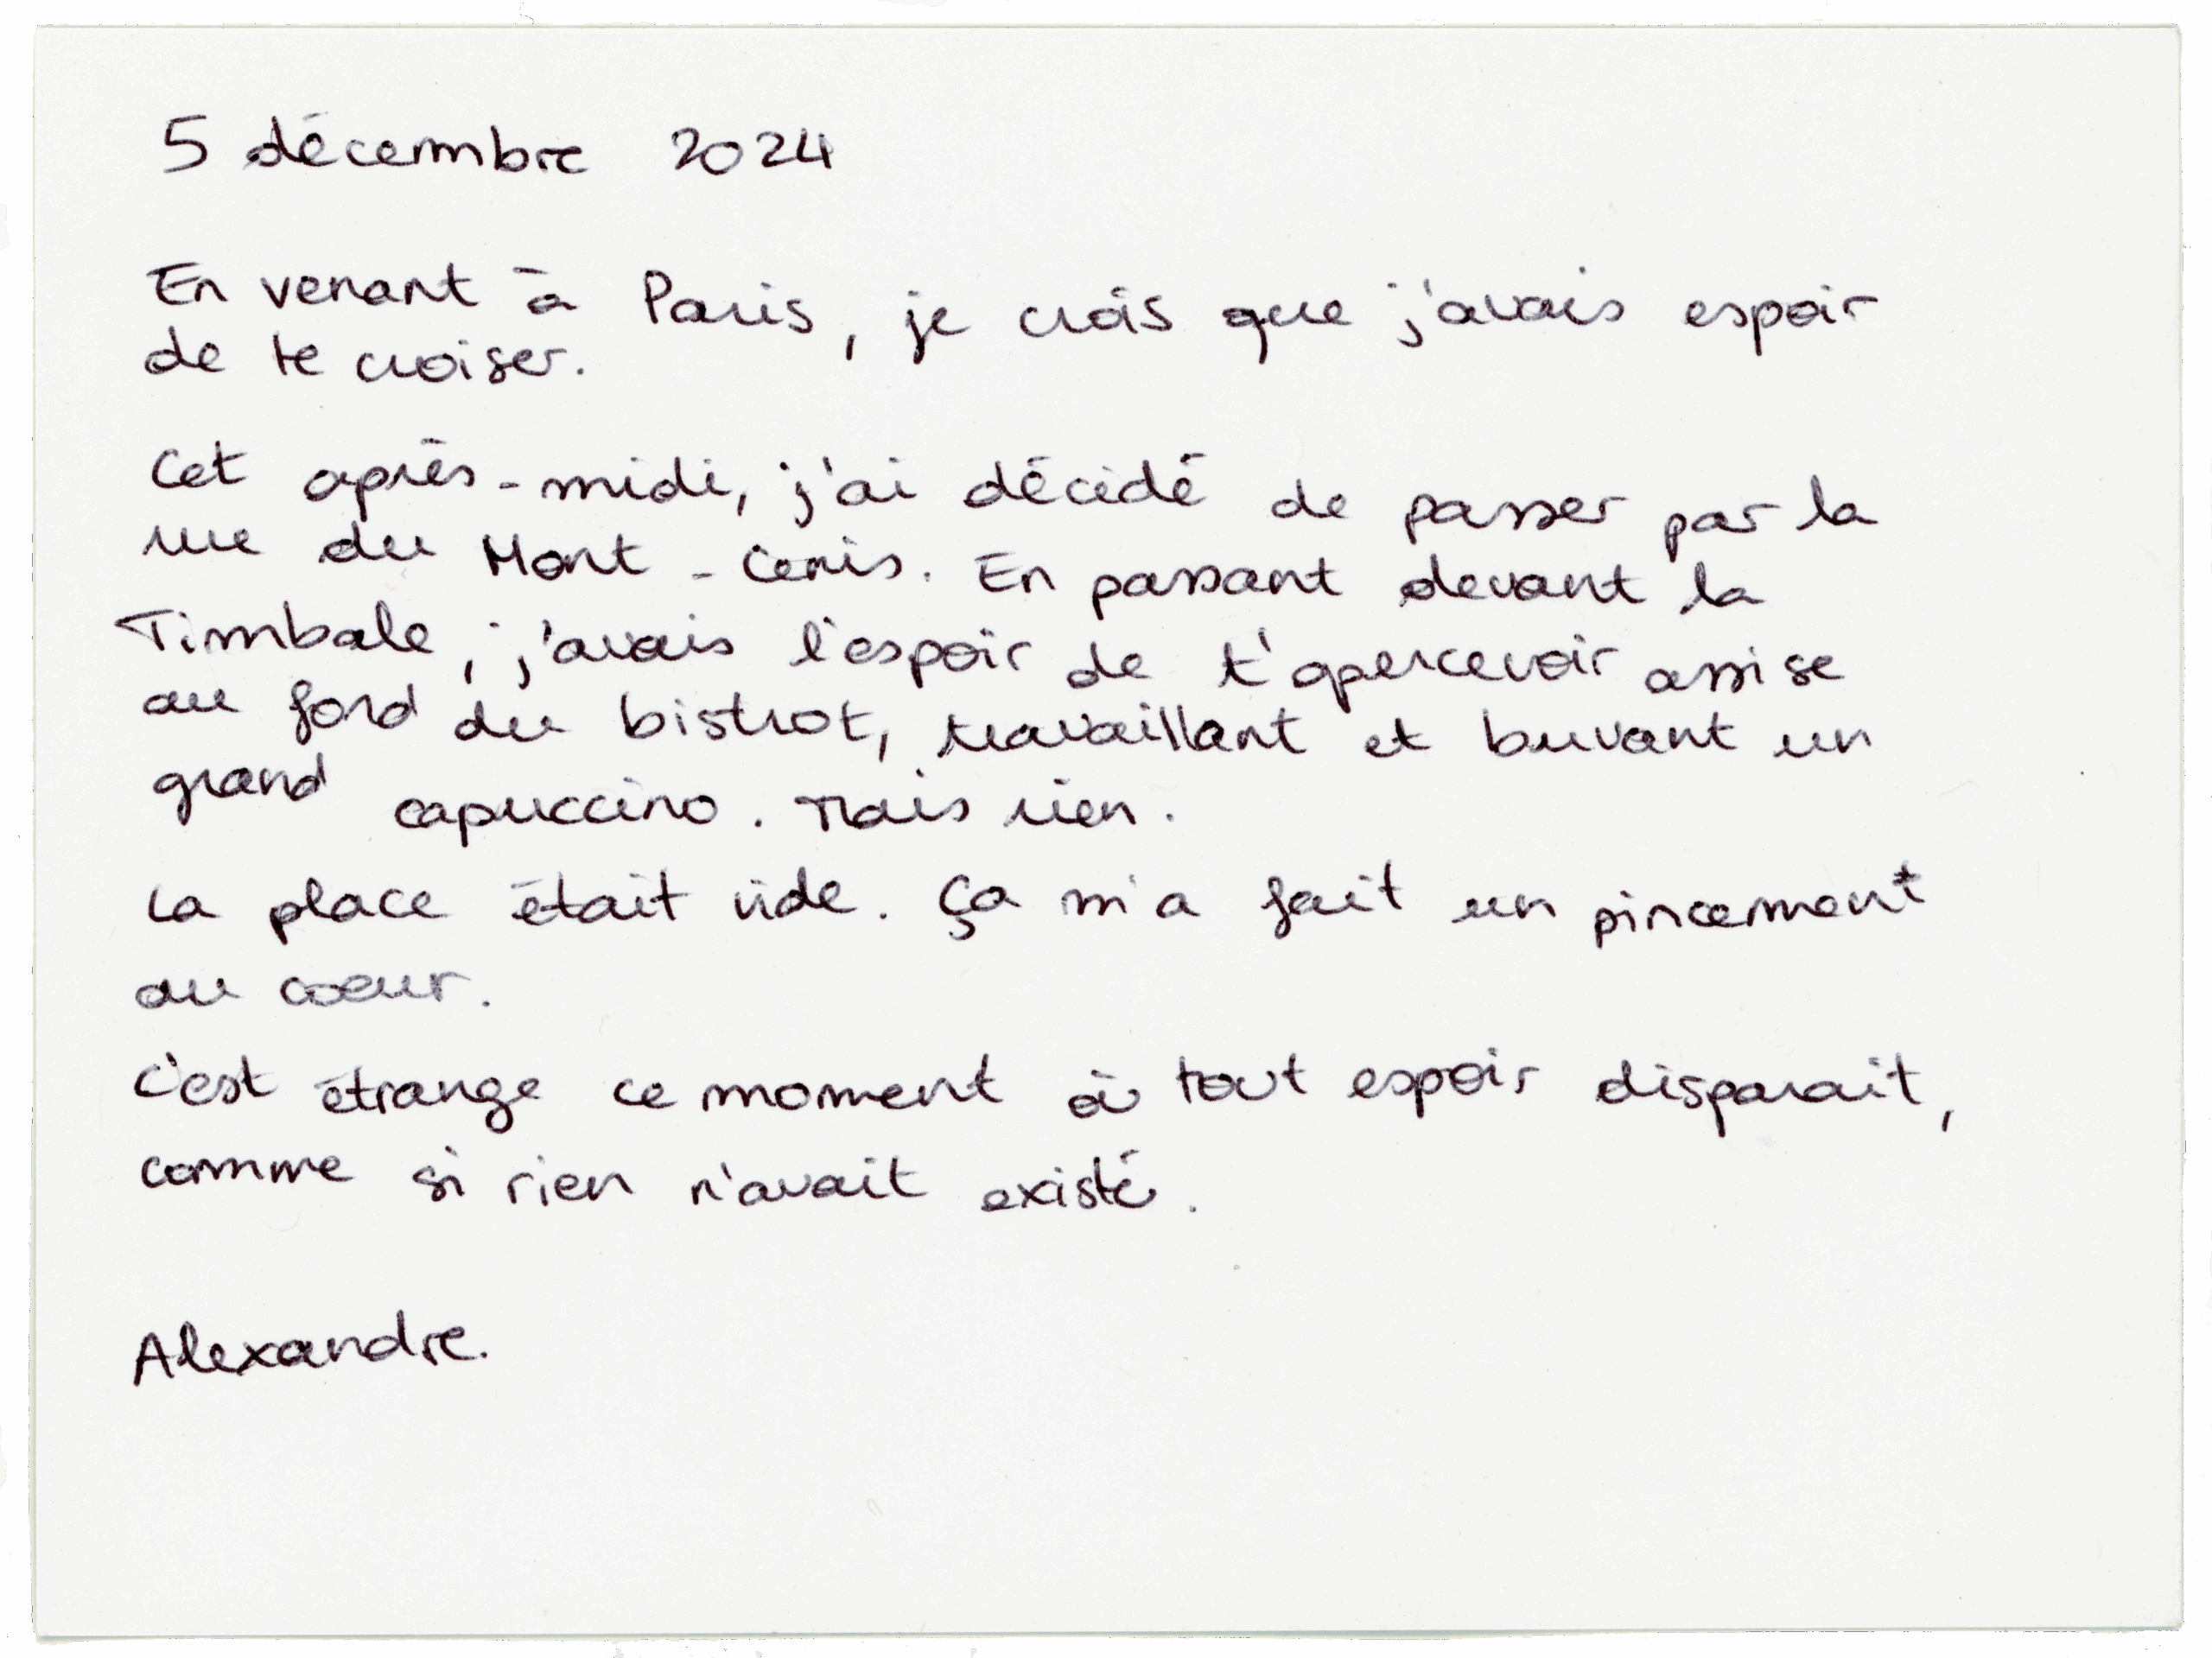 5 décembre 2024
En venant à Paris, je crois que j'avais espoir
de te croiser.
Cet après-midi, j'ai décidé de passer par la
rue du Mont-Cenis. En passant devant la
Timbale, j'avais l'espoir de t'apercevoir assise
au fond du bistrot, travaillant et buvant un
grand capuccino. Mais rien.
La place était vide. Ça m'a fait un pincement
au coeur.
C'est étrange ce moment où tout espoir disparait,
comme si rien n'avait existé.
Alexandre.